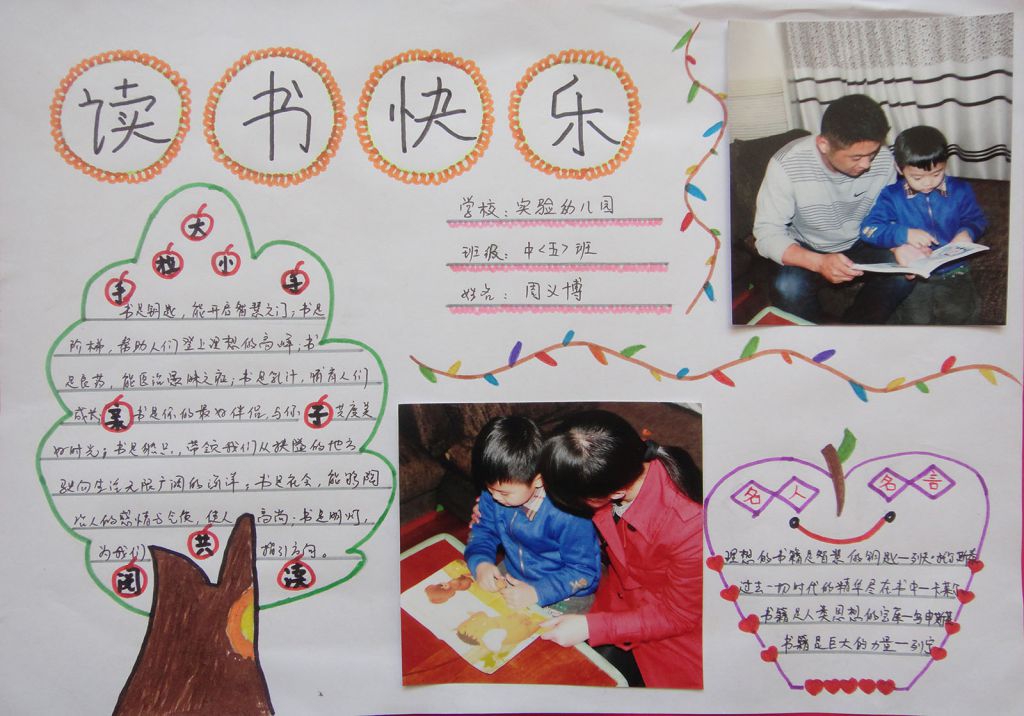 读书快乐
学校：实验幼儿园
班级：中<五>班
姓名：周义博
大
拉 小
手 手
书是钥匙，能开启智慧之门；书是
阶梯，帮助人们登上理想的高峰；书
是良药，能医治愚昧之症；书是乳汁，哺育人们
成长；书是你的最好伴侣，与你共度美
好时光；书是船只，带领我们从狭隘的地方
驶向生活无限广阔的海洋；书是花朵，能够陶
冶人的感情与气质，使人高尚；书是明灯，
为我们指引方向。
亲 子
共
阅 读
名人名言
理想的书籍是智慧的钥匙—列夫·托尔斯泰
过去一切时代的精华尽在书中—卡莱尔
书籍是人类思想的宝库—乌申斯基
书籍是巨大的力量—列宁